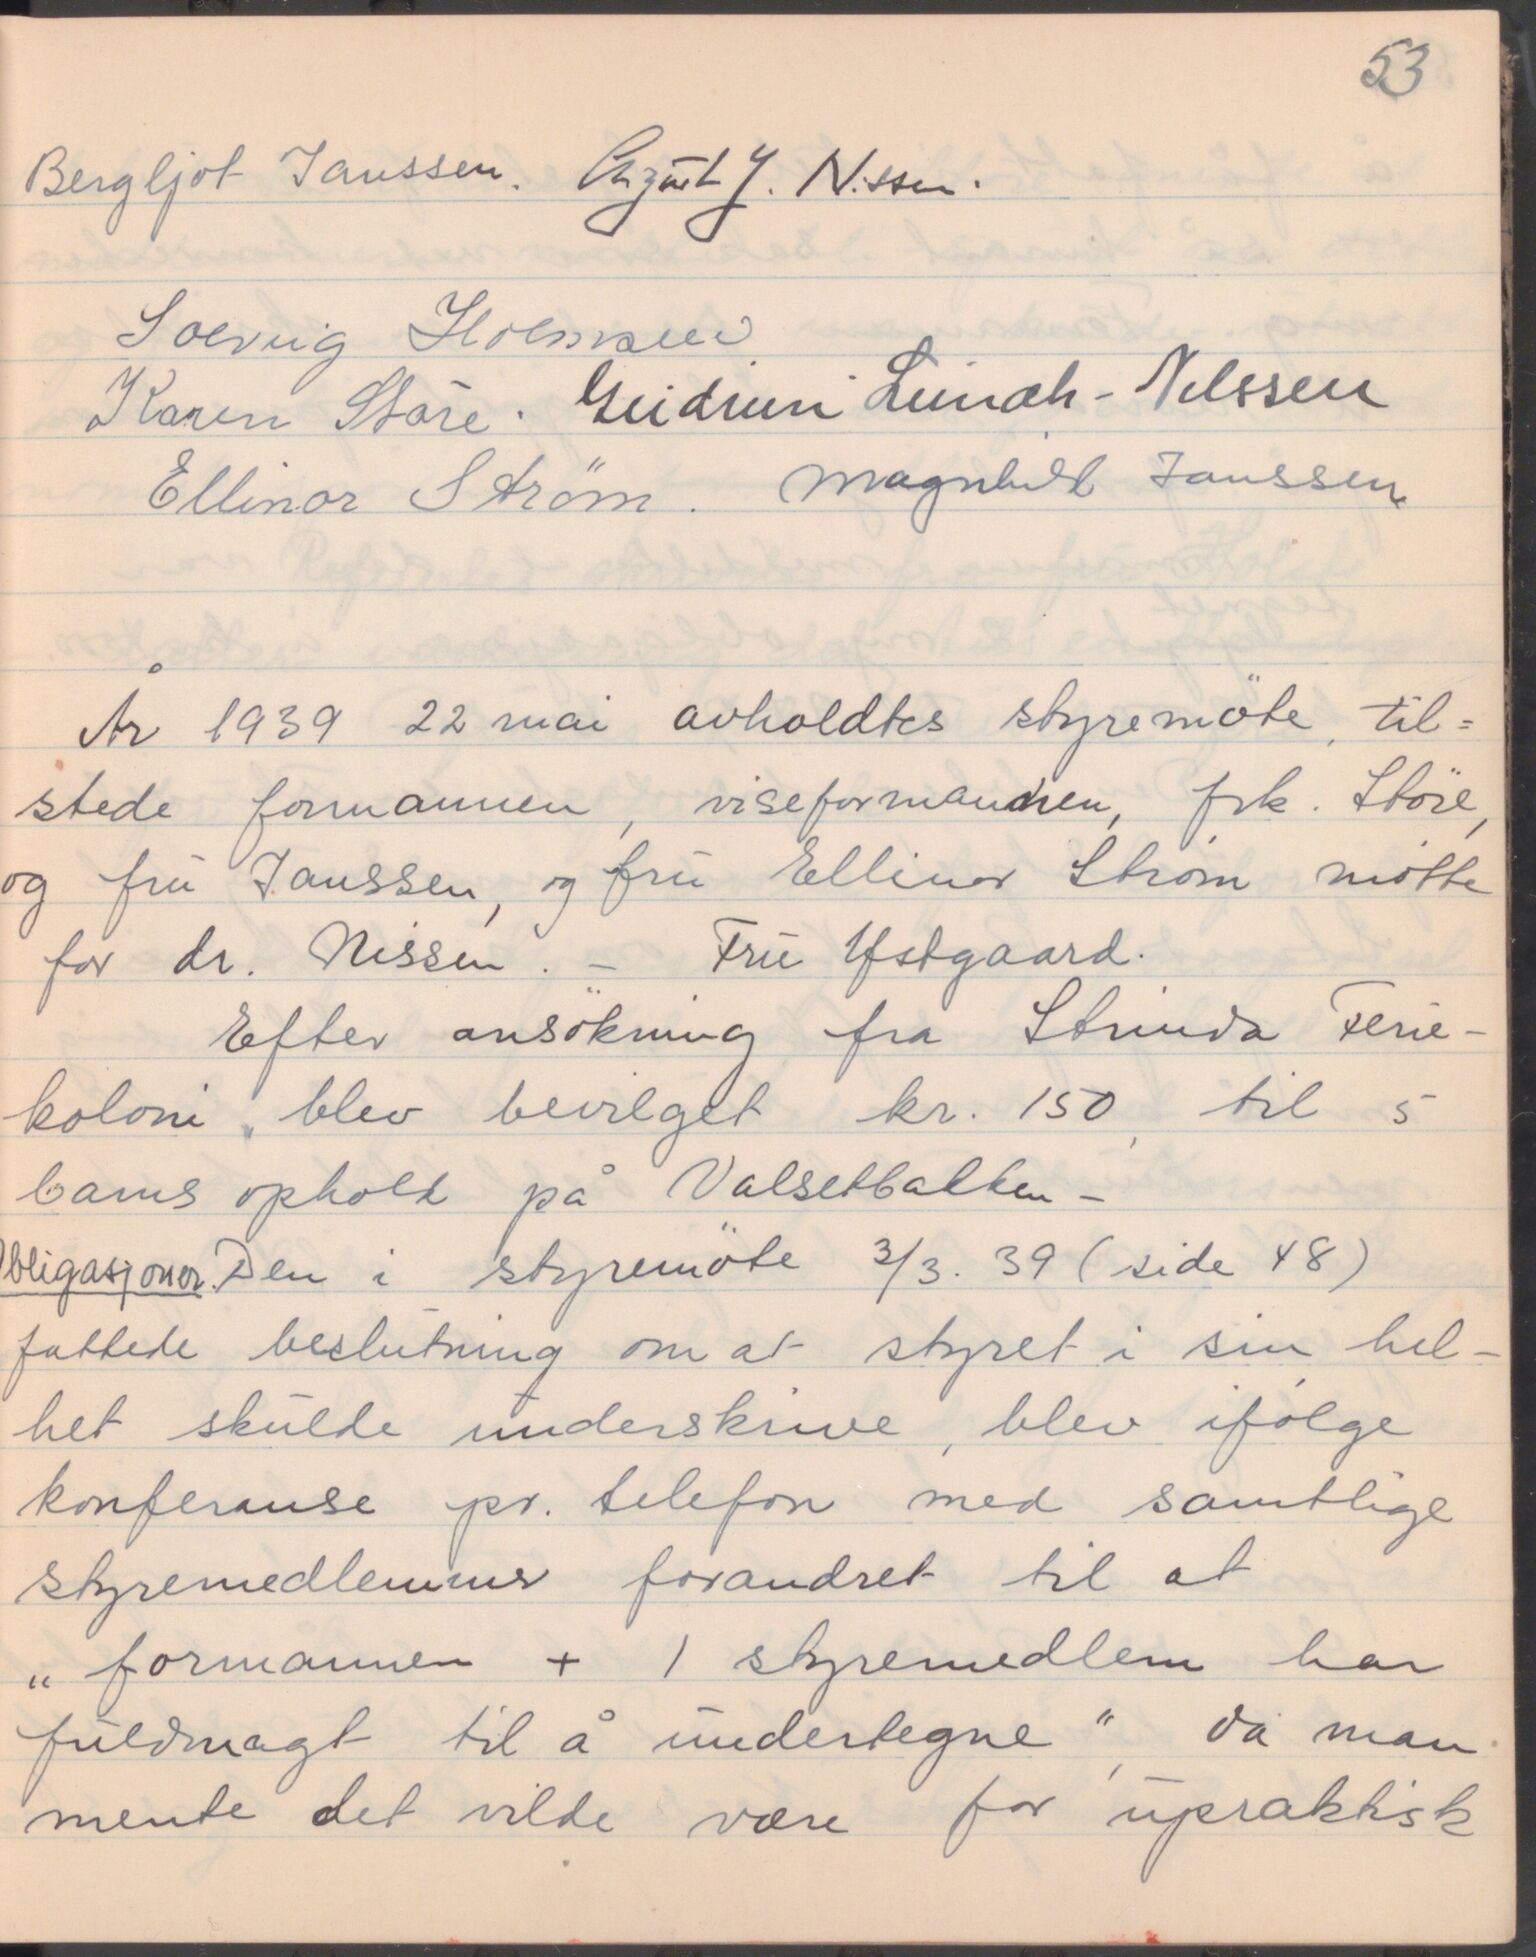 53
Bergljot Janssen. August J. Nissen.
Solveig Holmsen
Karen Støre. Gudrun Lunah-Nilssen
Ellinor Ström. Magnhild Janssen
År 1939 22 mai avholdtes styremöte, til=
stede formannen, viseformannen, frk. Störe,
og frü Janssen, og frü Ellinor Ström mötte
for dr. Nissen. - Frü Ystgaard.
Efter ansökning fra Strinda Ferie-
koloni, blev bevilget kr. 150, til 5
barns ophold på Valsetbakken -
Obligasjoner. Den i styremöte 3/3. 39 (side 48)
fattede beslutning om at styret i sin hel-
het skülde ünderskrive, blev ifölge
konferanse pr. telefon med samtlige
styremedlemmer forandret til at
„formannen + 1 styremedlem har
füldmagt til å ündertegne", da man
mente det vilde være for üpraktisk